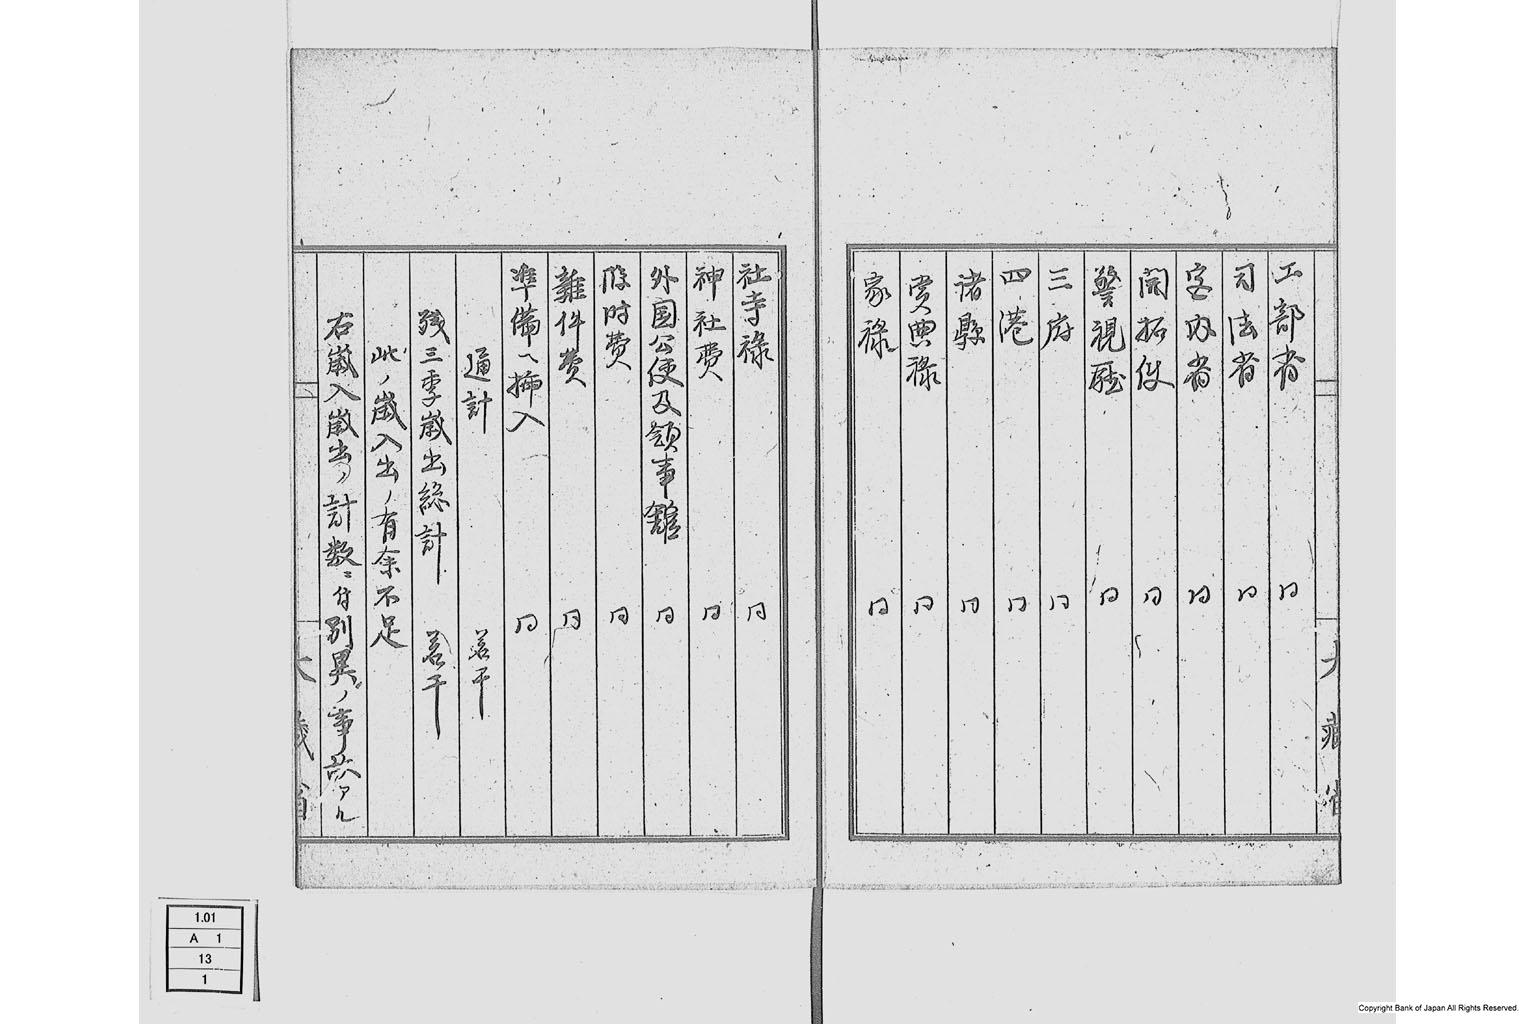 工部省 同
司法省 同
宮内省 同
開拓使 同
警視廳 同
三府 同
四港 同
諸縣 同
賞典禄 同
家禄 同
大藏省
社寺禄 同
神社費 同
外国公使及領事館 同
臨時費 同
雑件費 同
準備ヘ挿入 同
通計 若干
残三季歳出総計 若干
此ノ歳入出ノ有余不足
右歳入歳出ノ計数ニ付別異ノ事故アル
大藏省
1.01
A 1
13
1
Copyright Bank of Japan All Rights Reserved.